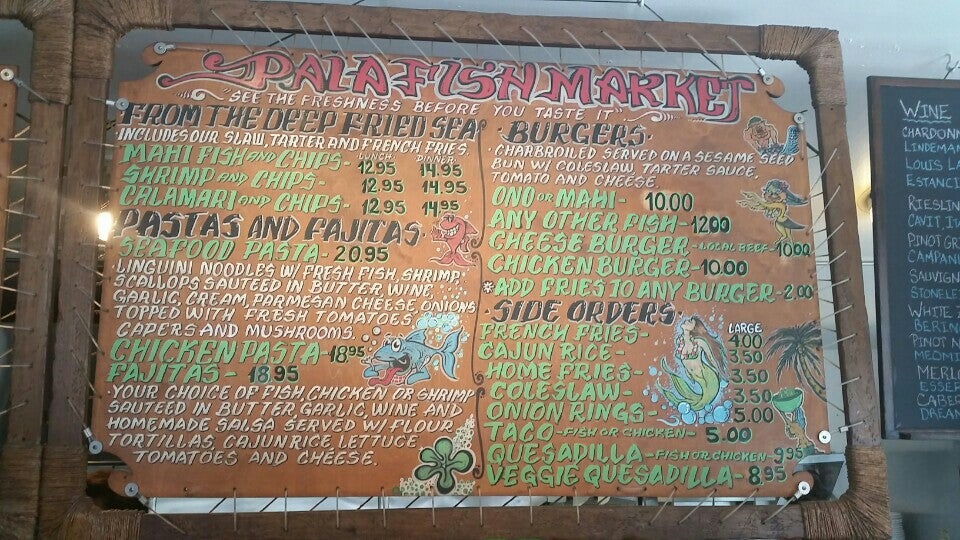 PAIA FISH MARKET
"SEE THE FRESHNESS BEFORE YOU TASTE IT"
FROM THE DEEP FRIED SEA
INCLUDES OUR SLAW, TARTER AND FRENCH FRIES.
LUNCH- DINNER-
MAHI FISH AND CHIPS- 12.95 14.95
SHRIMP AND CHIPS- 12.95 14.95
CALAMARI AND CHIPS- 12.95 14.95
PASTAS AND FAJITAS
SEAFOOD PASTA- 20.95
LINGUINI NOODLES W/ FRESH FISH, SHRIMP
SCALLOPS SAUTEED IN BUTTER, WINE,
GARLIC, CREAM, PARMESAN CHEESE ONIONS
TOPPED WITH FRESH TOMATOES,
CAPERS AND MUSHROOMS.
CHICKEN PASTA- 18.95
FAJITAS - 18.95
YOUR CHOICE OF FISH, CHICKEN OR SHRIMP
SAUTEED IN BUTTER, GARLIC, WINE AND
HOMEMADE SALSA SERVED W/ FLOUR
TORTILLAS, CAJUN RICE, LETTUCE
TOMATOES AND CHEESE.
·BURGERS·
·CHARBROILED SERVED ON A SESAME SEED
BUN W/ COLESLAW, TARTER SAUCE,
TOMATO AND CHEESE.
ONO OR MAHI- 10.00
ANY OTHER FISH- 12.00
CHEESE BURGER -LOCAL BEEF- 10.00
CHICKEN BURGER- 10.00
*ADD FRIES TO ANY BURGER- 2.00
·SIDE ORDERS·
LARGE
FRENCH FRIES- 4.00
CAJUN RICE- 3.50
HOME FRIES- 3.50
COLESLAW- 3.50
ONION RINGS- 5.00
TACO -FISH OR CHICKEN- 5.00
QUESADILLA -FISH OR CHICKEN- 9.95
VEGGIE QUESADILLA- 8.95
WINE
CHARDONN
LINDEMAN
LOUIS LA
ESTANCI
RIESLIN
CAVIT, ITA
PINOT GR
CAMPANI
SAUVIGN
STONELE
WHITE Z
BERIN
PINOT N
MEOMI
MERLO
ESSER
CABER
DREAM